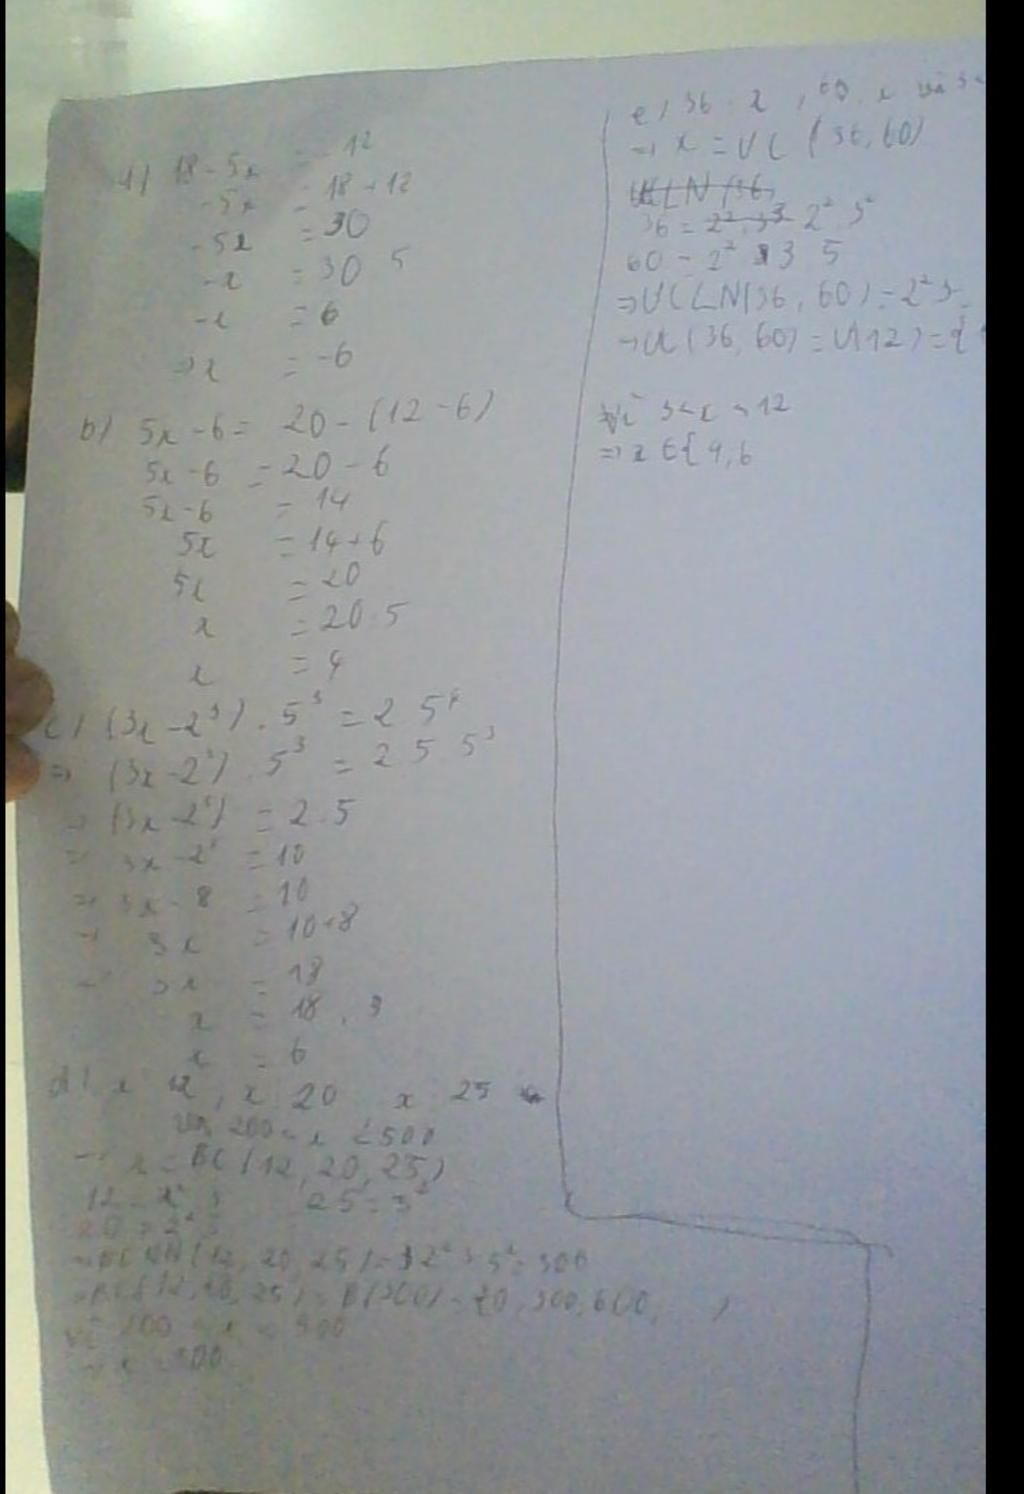 18 - 5x = 12
-5x = 18 + 12
-5x = 30
-x = 30 5
-x = 6
⇒ x = -6
b) 5x - 6 = 20 - (12 - 6)
5x - 6 = 20 - 6
5x - 6 = 14
5x = 14 + 6
5x = 20
x = 20 : 5
x = 4
c) (3x - 2³) . 5³ = 2 5⁴
⇒ (3x - 2³) . 5³ = 2 5 5³
⇒ (3x - 2³) = 2.5
⇒ 3x - 2³ = 10
⇒ 3x - 8 = 10
⇒ 3x = 10 + 8
⇒ 3x = 18
x = 18 : 3
x = 6
d) x 12, x 20 x 25
và 200 < x < 500
⇒ x = BC (12, 20, 25)
⇒ BCNN (12, 20, 25) = 2² 3 5² = 300
⇒ BC (12, 20, 25) = B(300) = {0, 300, 600,
⇒ x = 300
e) 36 x, 60 x và 3 <
⇒ x = ƯC (36, 60)
36 = 2² 3²
60 = 2² 3 5
⇒ ƯCLN (36, 60) = 2² 3
⇒ ƯC (36, 60) = Ư(12) = {
Vì 3 < x < 12
⇒ x ∈ { 4, 6